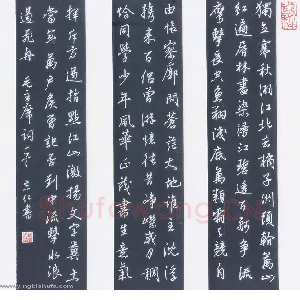 獨立寒秋湘江北去橘子洲頭看萬山
紅遍層林盡染漫江碧透百舸爭流
鷹擊長空魚翔淺底萬類霜天競自
由悵寥廓問蒼茫大地誰主沈浮
攜來百侶曾游憶往昔崢嶸歲月稠
恰同學少年風華正茂書生意氣
揮斥方遒指點江山激揚文字糞土
當年萬戶侯曾記否到中流擊水浪
遏飛舟 毛主席詞